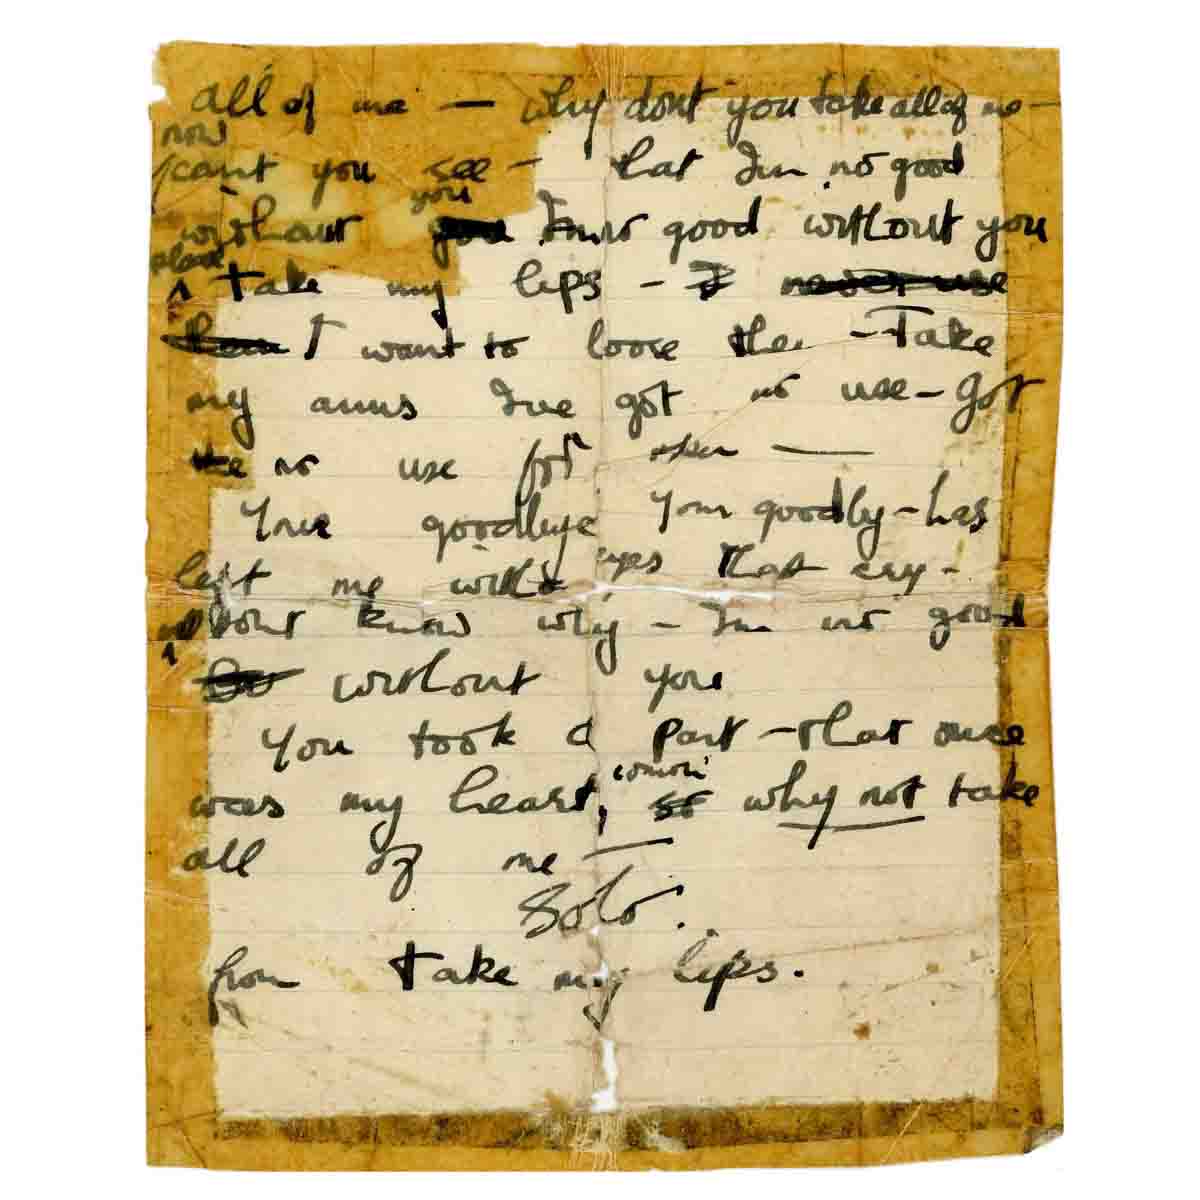 all of me — why dont you take all of me —
now
cant you see — that Im no good
you
without you Im no good without you
please
Take my lips — I never use
them I want to loose the — Take
my arms Ive got no use — Got
the no use for them —
Your goodbye Your goodby — has
left me with eyes that cry —
dont know why — Im no good
without you
You took a part — that once
was my heart, comon
so why not take
all of me —
Solo.
from take my lips.